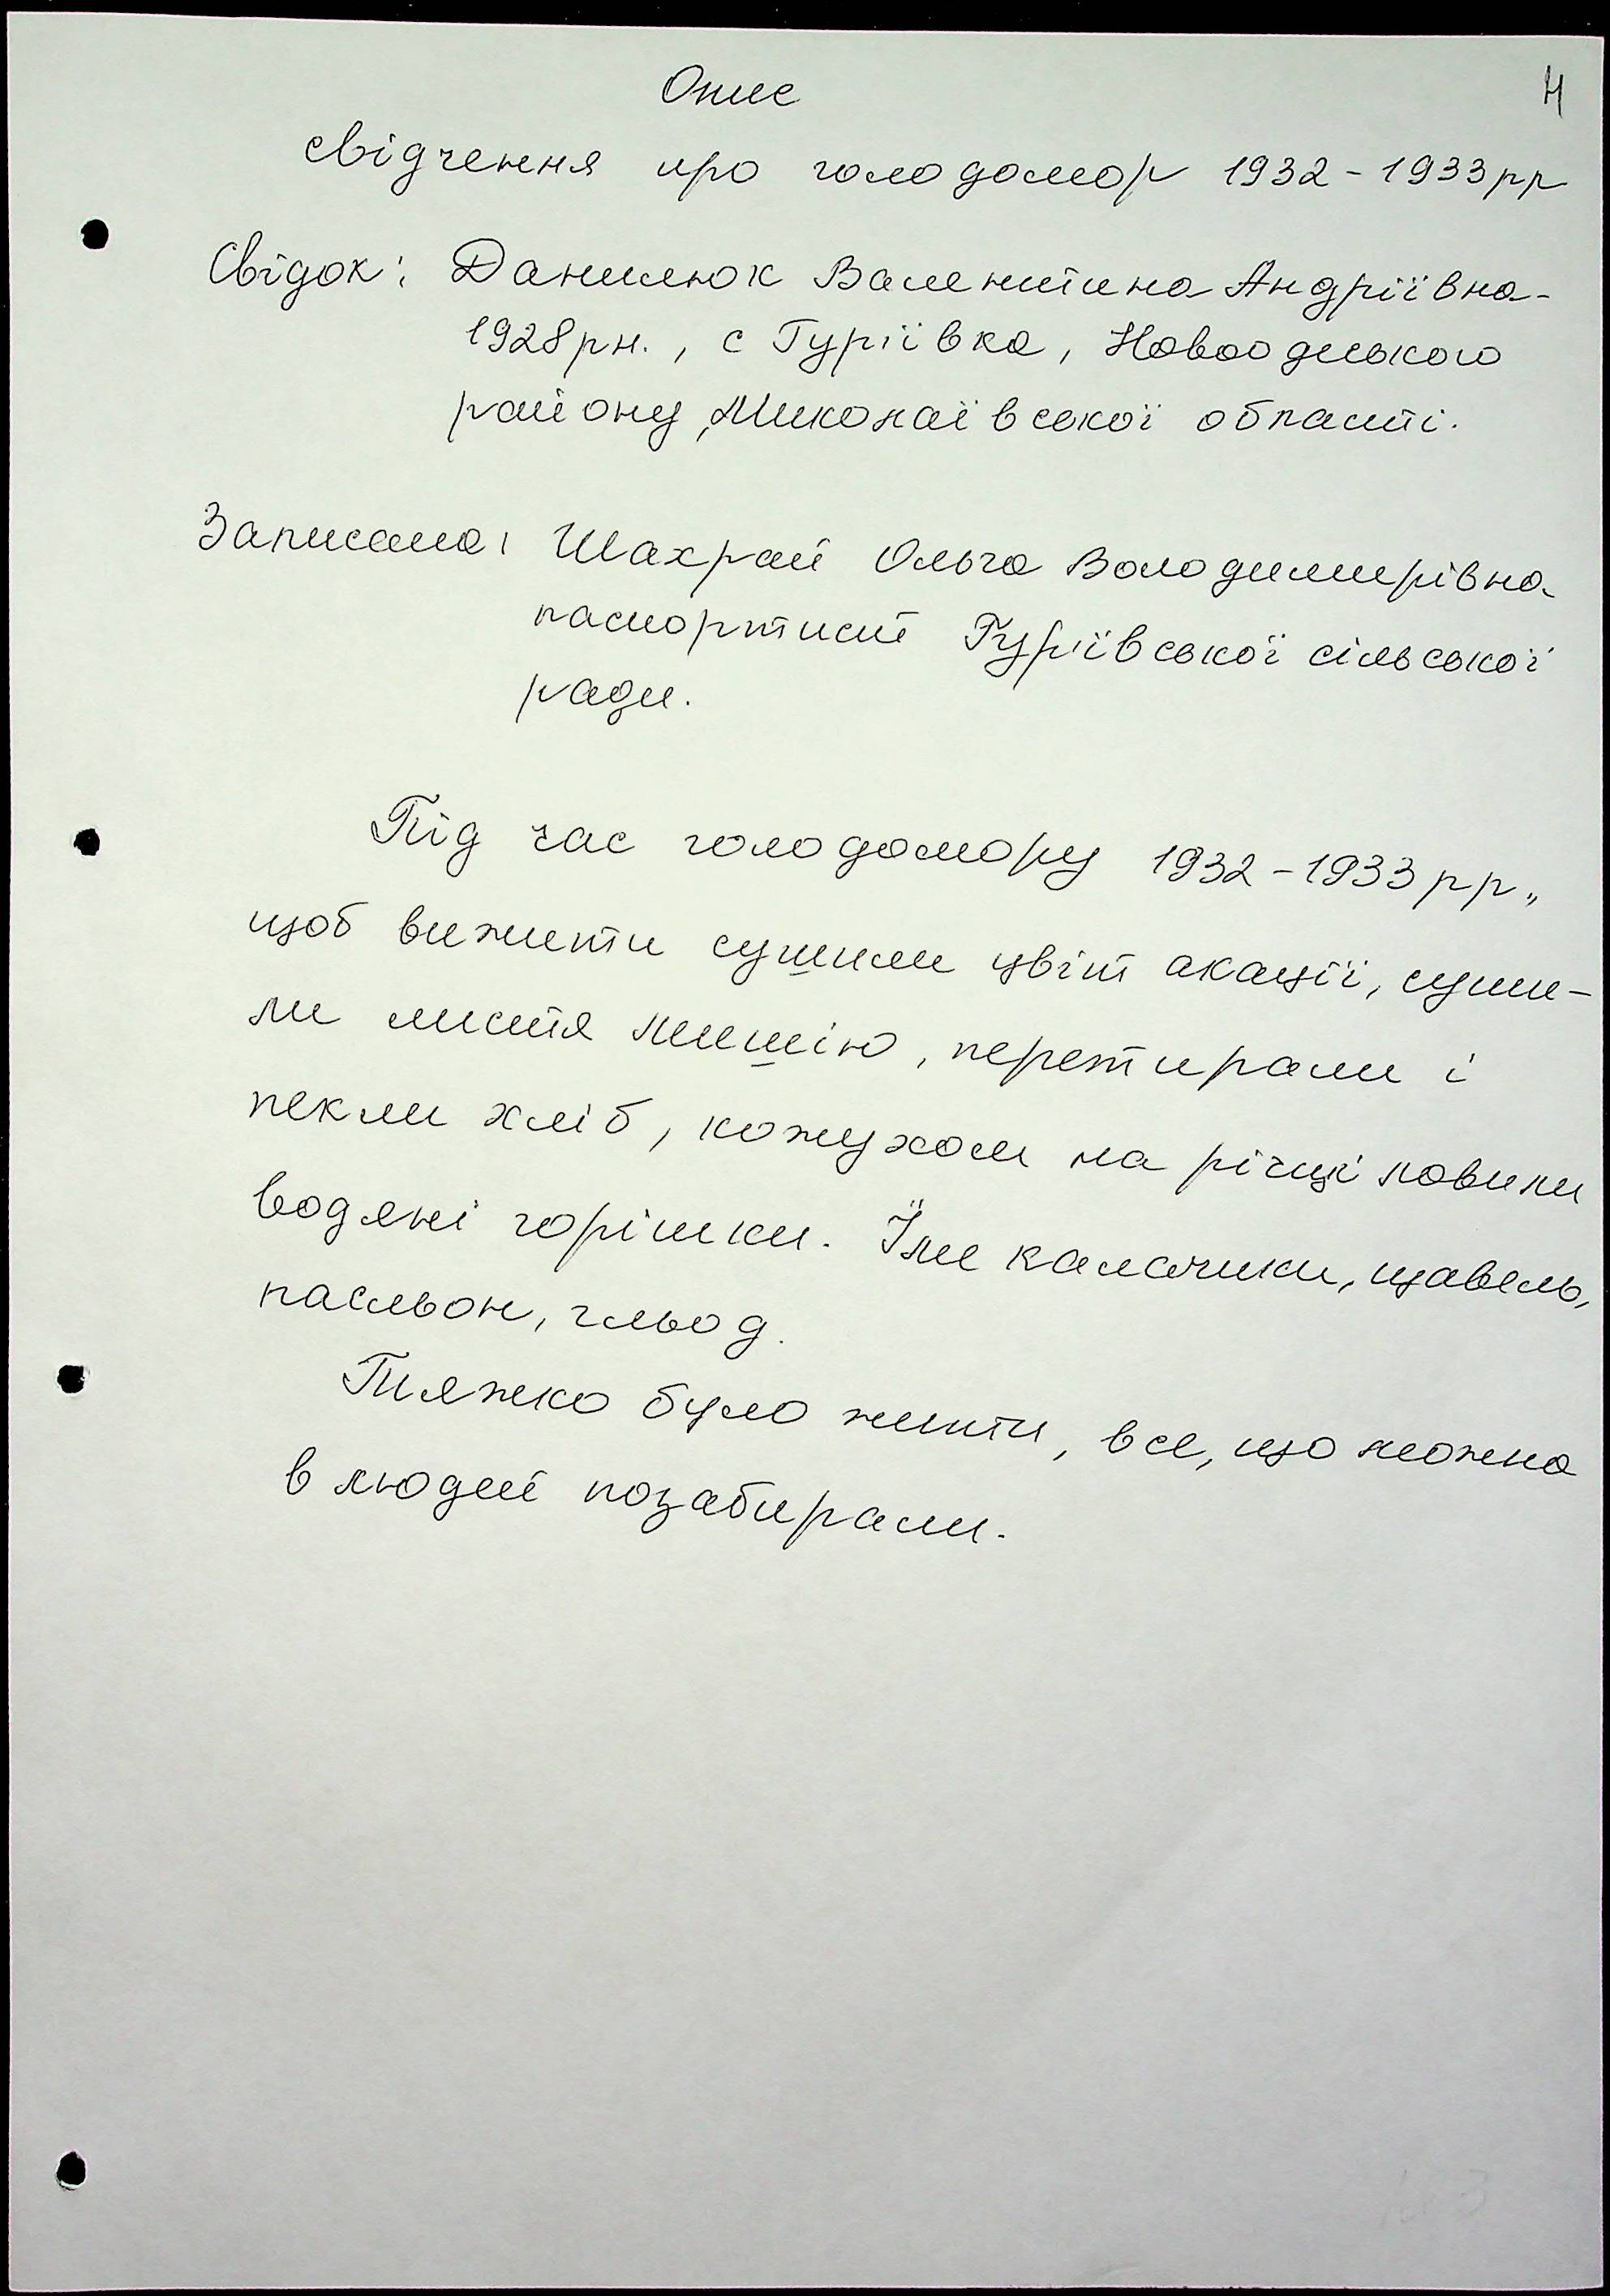 Опис
4
свідчення про голодомор 1932-1933рр
Свідок: Данилюк Валентина Андріївна-
1928рн., с Гуріївка, Новоодеського
району, Миколаївської області.
Записала: Шахрай Ольга Володимирівна-
паспортист Гуріївської сільської
ради.
Під час голодомору 1932-1933рр.,
щоб вижити сушили цвіт акації, суши-
ли листя, перетирали і
пекли хліб, кожухом на річці ловили
водяні горішки. Їли калачики, щавель,
пасльон, гльод.
Тяжко було жити, все, що можна
в людей позабирали.